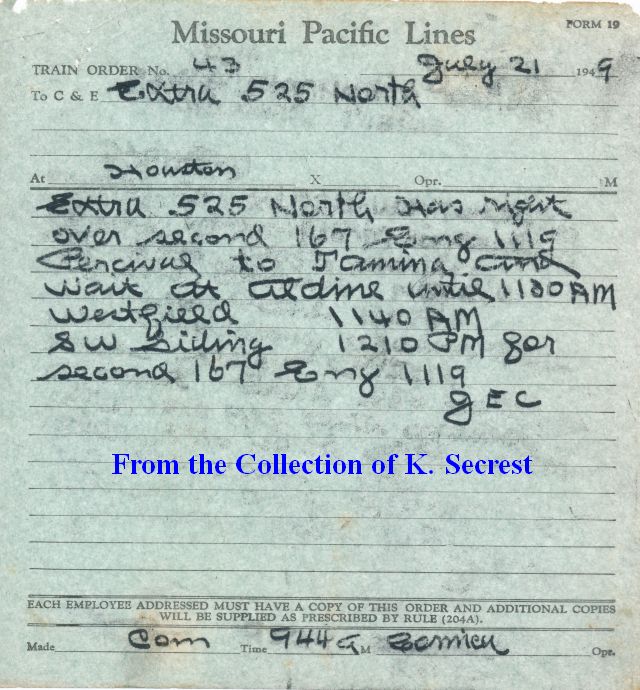 FORM 19
Missouri Pacific Lines
TRAIN ORDER No. 43 July 21 1949
To C & E Extra 525 North
At Houston X Opr. M
Extra 525 North has right
over second 167 Eng 1119
Percival to Tamina and
wait at Aldine until 1130 AM
Westfield 1140 AM
SW Siding 1210 PM for
second 167 Eng 1119
GEC
From the Collection of K. Secrest
EACH EMPLOYEE ADDRESSED MUST HAVE A COPY OF THIS ORDER AND ADDITIONAL COPIES
WILL BE SUPPLIED AS PRESCRIBED BY RULE (204A).
Made Com Time 944 A M Opr.